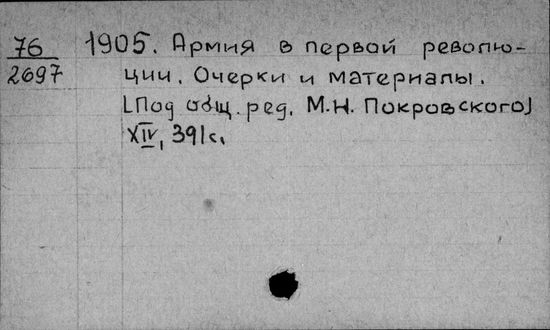 76 1905. Армия в первой револю-
2697 ции. Очерки и материалы.
[Под общ. ред. М.Н. Покровского]
XIV, 391с.